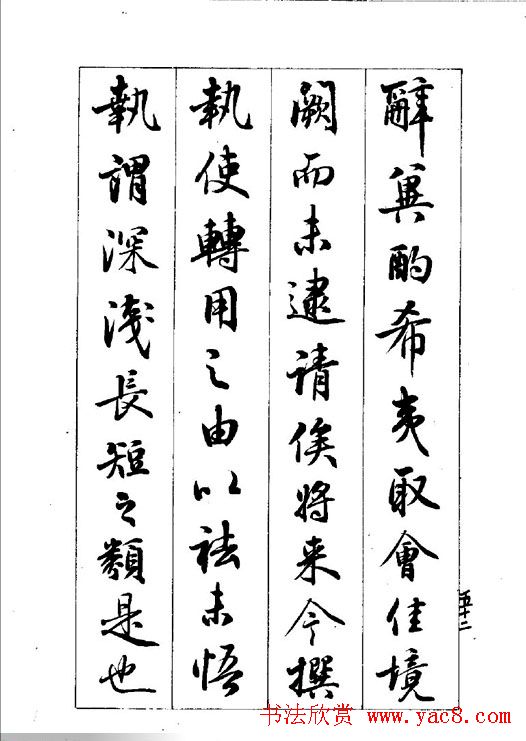 辭冀酌希夷取會佳境
闕而未逮請俟將来今撰
執使轉用之由以祛未悟
執謂深淺長短之類是也
五十二
书法欣赏 www.yac8.com